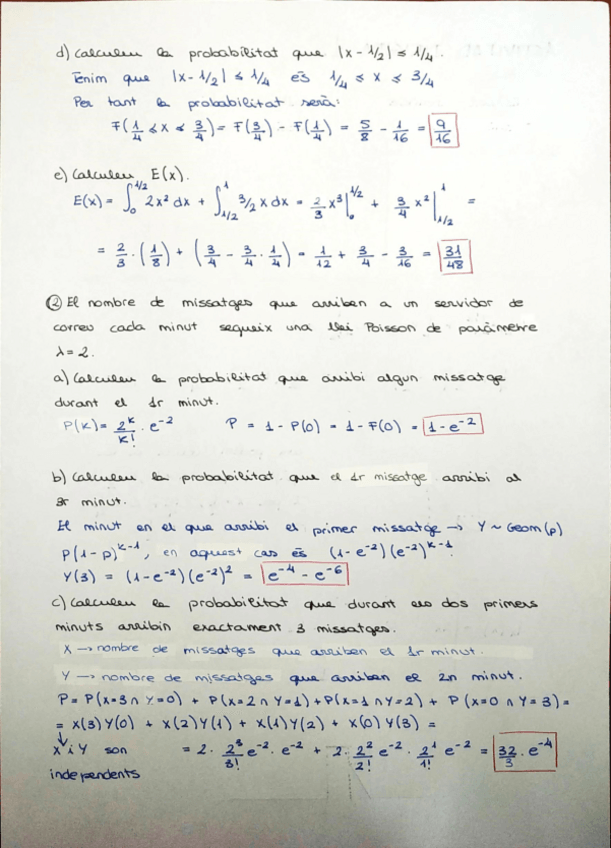 d) Calculeu la probabilitat que |x - 1/2| ≤ 1/4.
Tenim que |x - 1/2| ≤ 1/4 és 1/4 ≤ x ≤ 3/4
Per tant la probabilitat serà:
F(1/4 ≤ x ≤ 3/4) = F(3/4) - F(1/4) = 5/8 - 1/16 = 9/16
e) Calculeu E(x).
E(x) = ∫₀^{1/2} 2x² dx + ∫_{1/2}^1 3/2 x dx = 2/3 x³|₀^{1/2} + 3/4 x²|_{1/2}^1 =
= 2/3 · (1/8) + (3/4 - 3/4 · 1/4) = 1/12 + 3/4 - 3/16 = 31/48
② El nombre de missatges que arriben a un servidor de
correu cada minut segueix una llei Poisson de paràmetre
λ = 2.
a) Calculeu la probabilitat que arribi algun missatge
durant el 1r minut.
P(K) = 2^K/K! · e^{-2} P = 1 - P(0) = 1 - F(0) = 1 - e^{-2}
b) Calculeu la probabilitat que el 1r missatge arribi al
3r minut.
El minut en el que arribi el primer missatge → Y ~ Geom(p)
P(1-p)^{K-1}, en aquest cas és (1-e^{-2})(e^{-2})^{K-1}
Y(3) = (1-e^{-2})(e^{-2})² = e^{-4} - e^{-6}
c) Calculeu la probabilitat que durant els dos primers
minuts arribin exactament 3 missatges.
X → nombre de missatges que arriben el 1r minut.
Y → nombre de missatges que arriben el 2n minut.
P = P(x=3 ∩ Y=0) + P(x=2 ∩ Y=1) + P(x=1 ∩ Y=2) + P(x=0 ∩ Y=3) =
= X(3)Y(0) + X(2)Y(1) + X(1)Y(2) + X(0)Y(3) =
X i Y son = 2 · 2³/3! e^{-2} · e^{-2} + 2 · 2²/2! e^{-2} · 2¹/1! e^{-2} = 32/3 · e^{-4}
independents